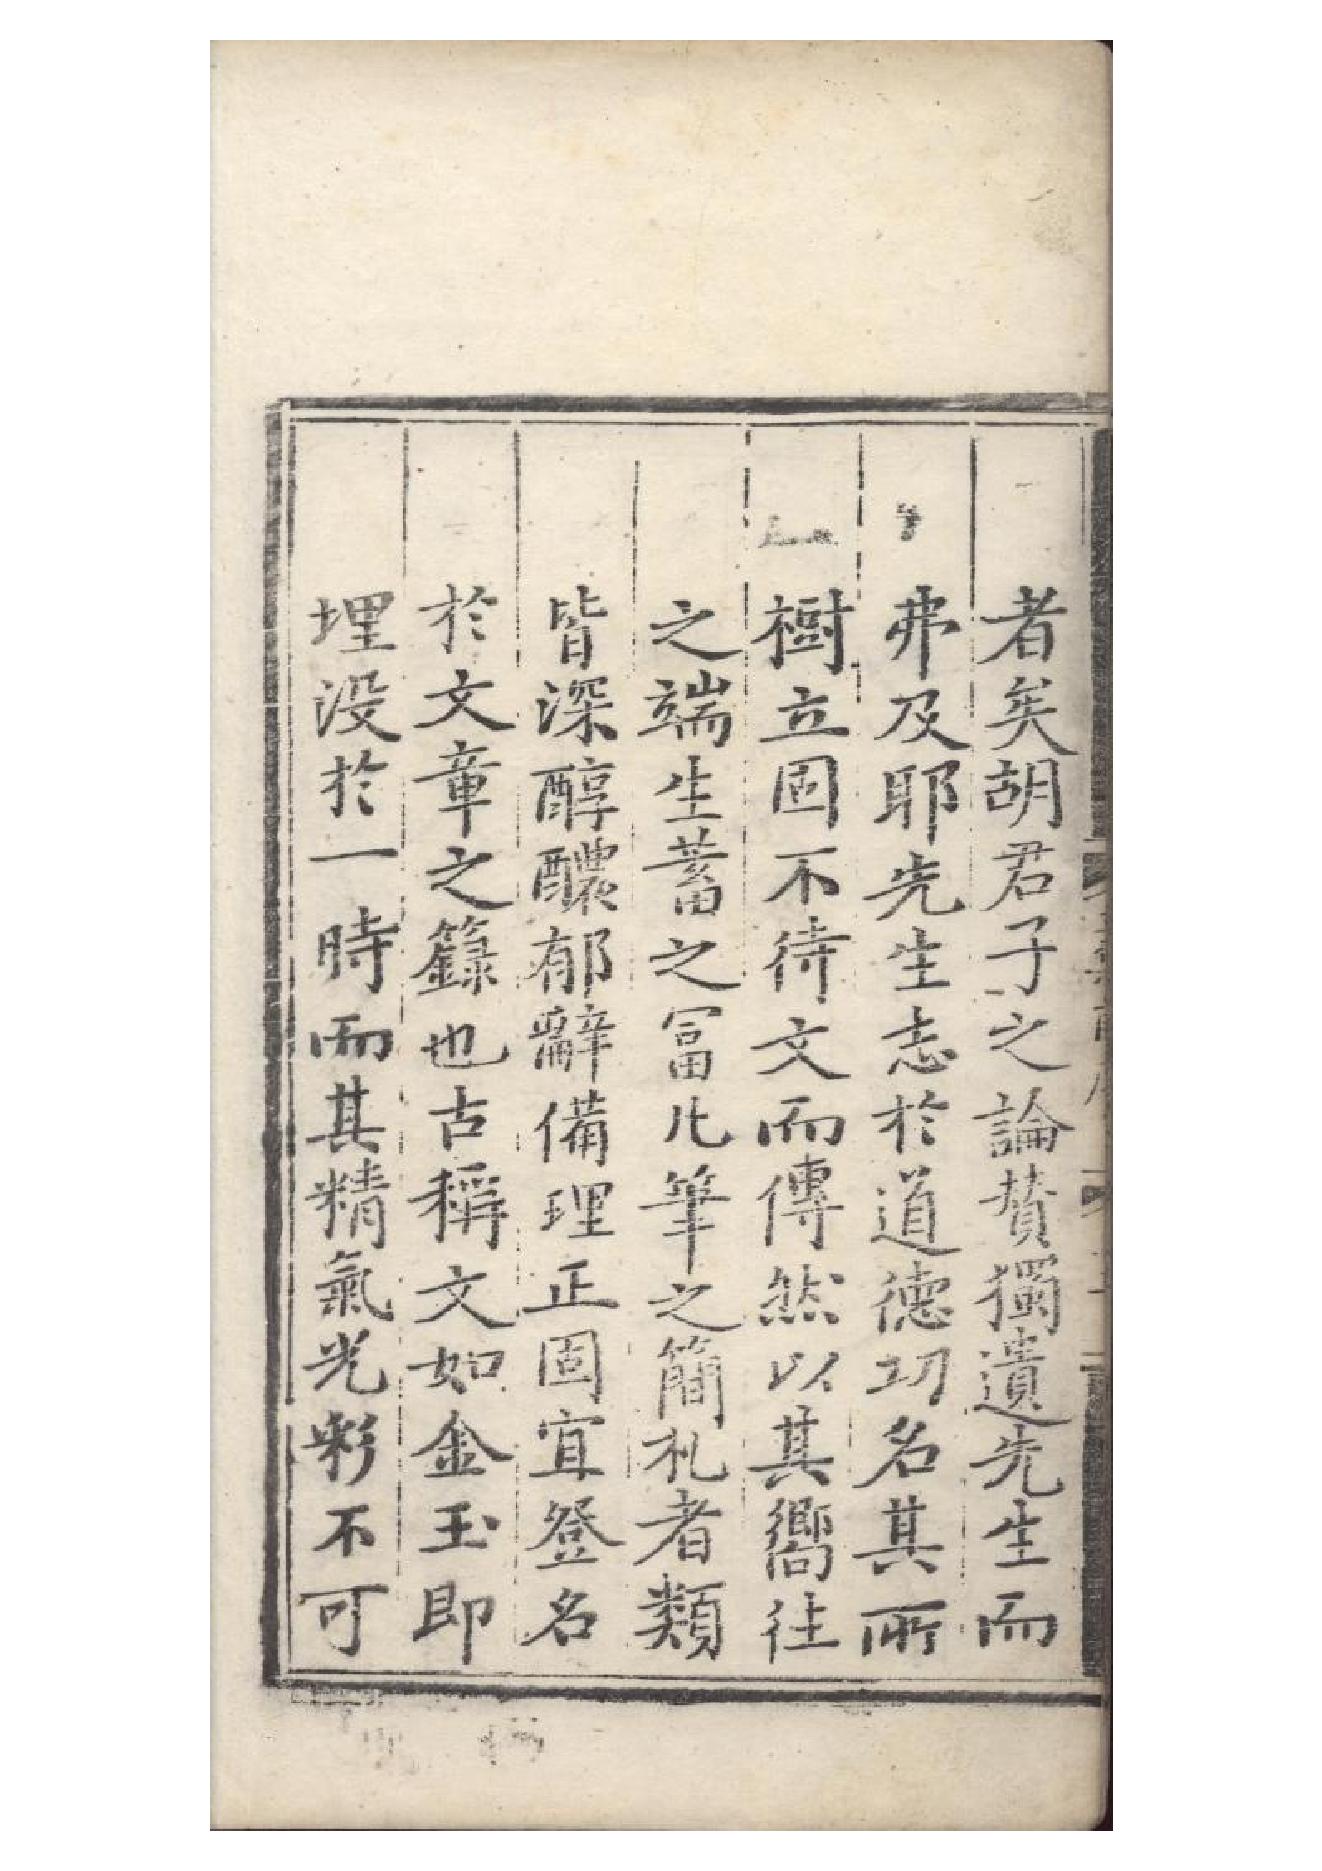 者矣胡君子之論賛獨遺先生而
弗及耶先生志於道德功名其所
樹立固不待文而傳然以其嚮往
之端生蓄之冨凡筆之簡札者類
皆深醇醲郁辭備理正固宜登名
於文章之籙也古稱文如金玉即
埋没於一時而其精氣光彩不可